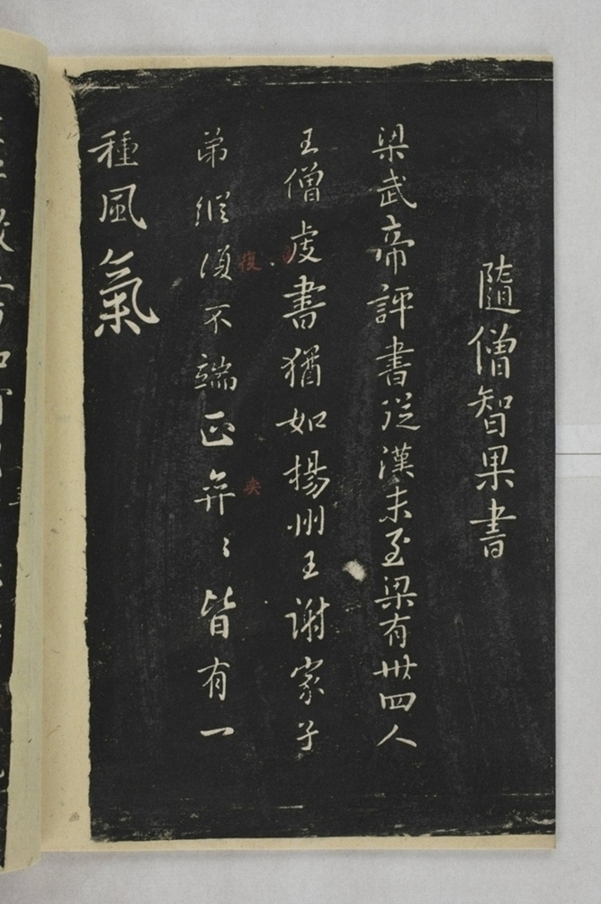 隨僧智果書
梁武帝評書從漢末至梁有卅四人
王僧虔書猶如揚州王謝家子
弟縱復不端正奕〻皆有一
種風氣
復
奕